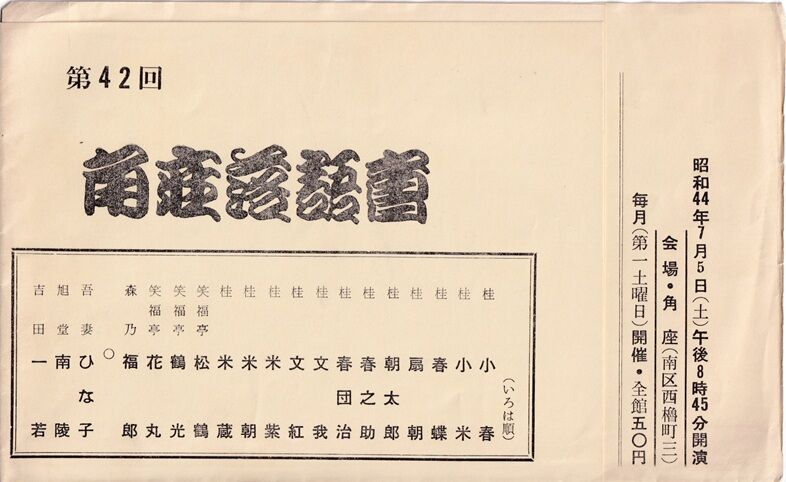 昭和44年7月5日(土)午後8時45分開演
会場・角座(南区西櫓町三)
毎月(第一土曜日)開催・全館五〇円
第42回
角座落語會
(いろは順)
桂小春
桂小米
桂春蝶
桂扇朝
桂朝太郎
桂春之助
桂春団治
桂文我
桂文紅
桂米紫
桂米朝
桂米蔵
笑福亭松鶴
笑福亭鶴光
笑福亭花丸
森乃福郎
○
吾妻ひな子
旭堂南陵
吉田一若